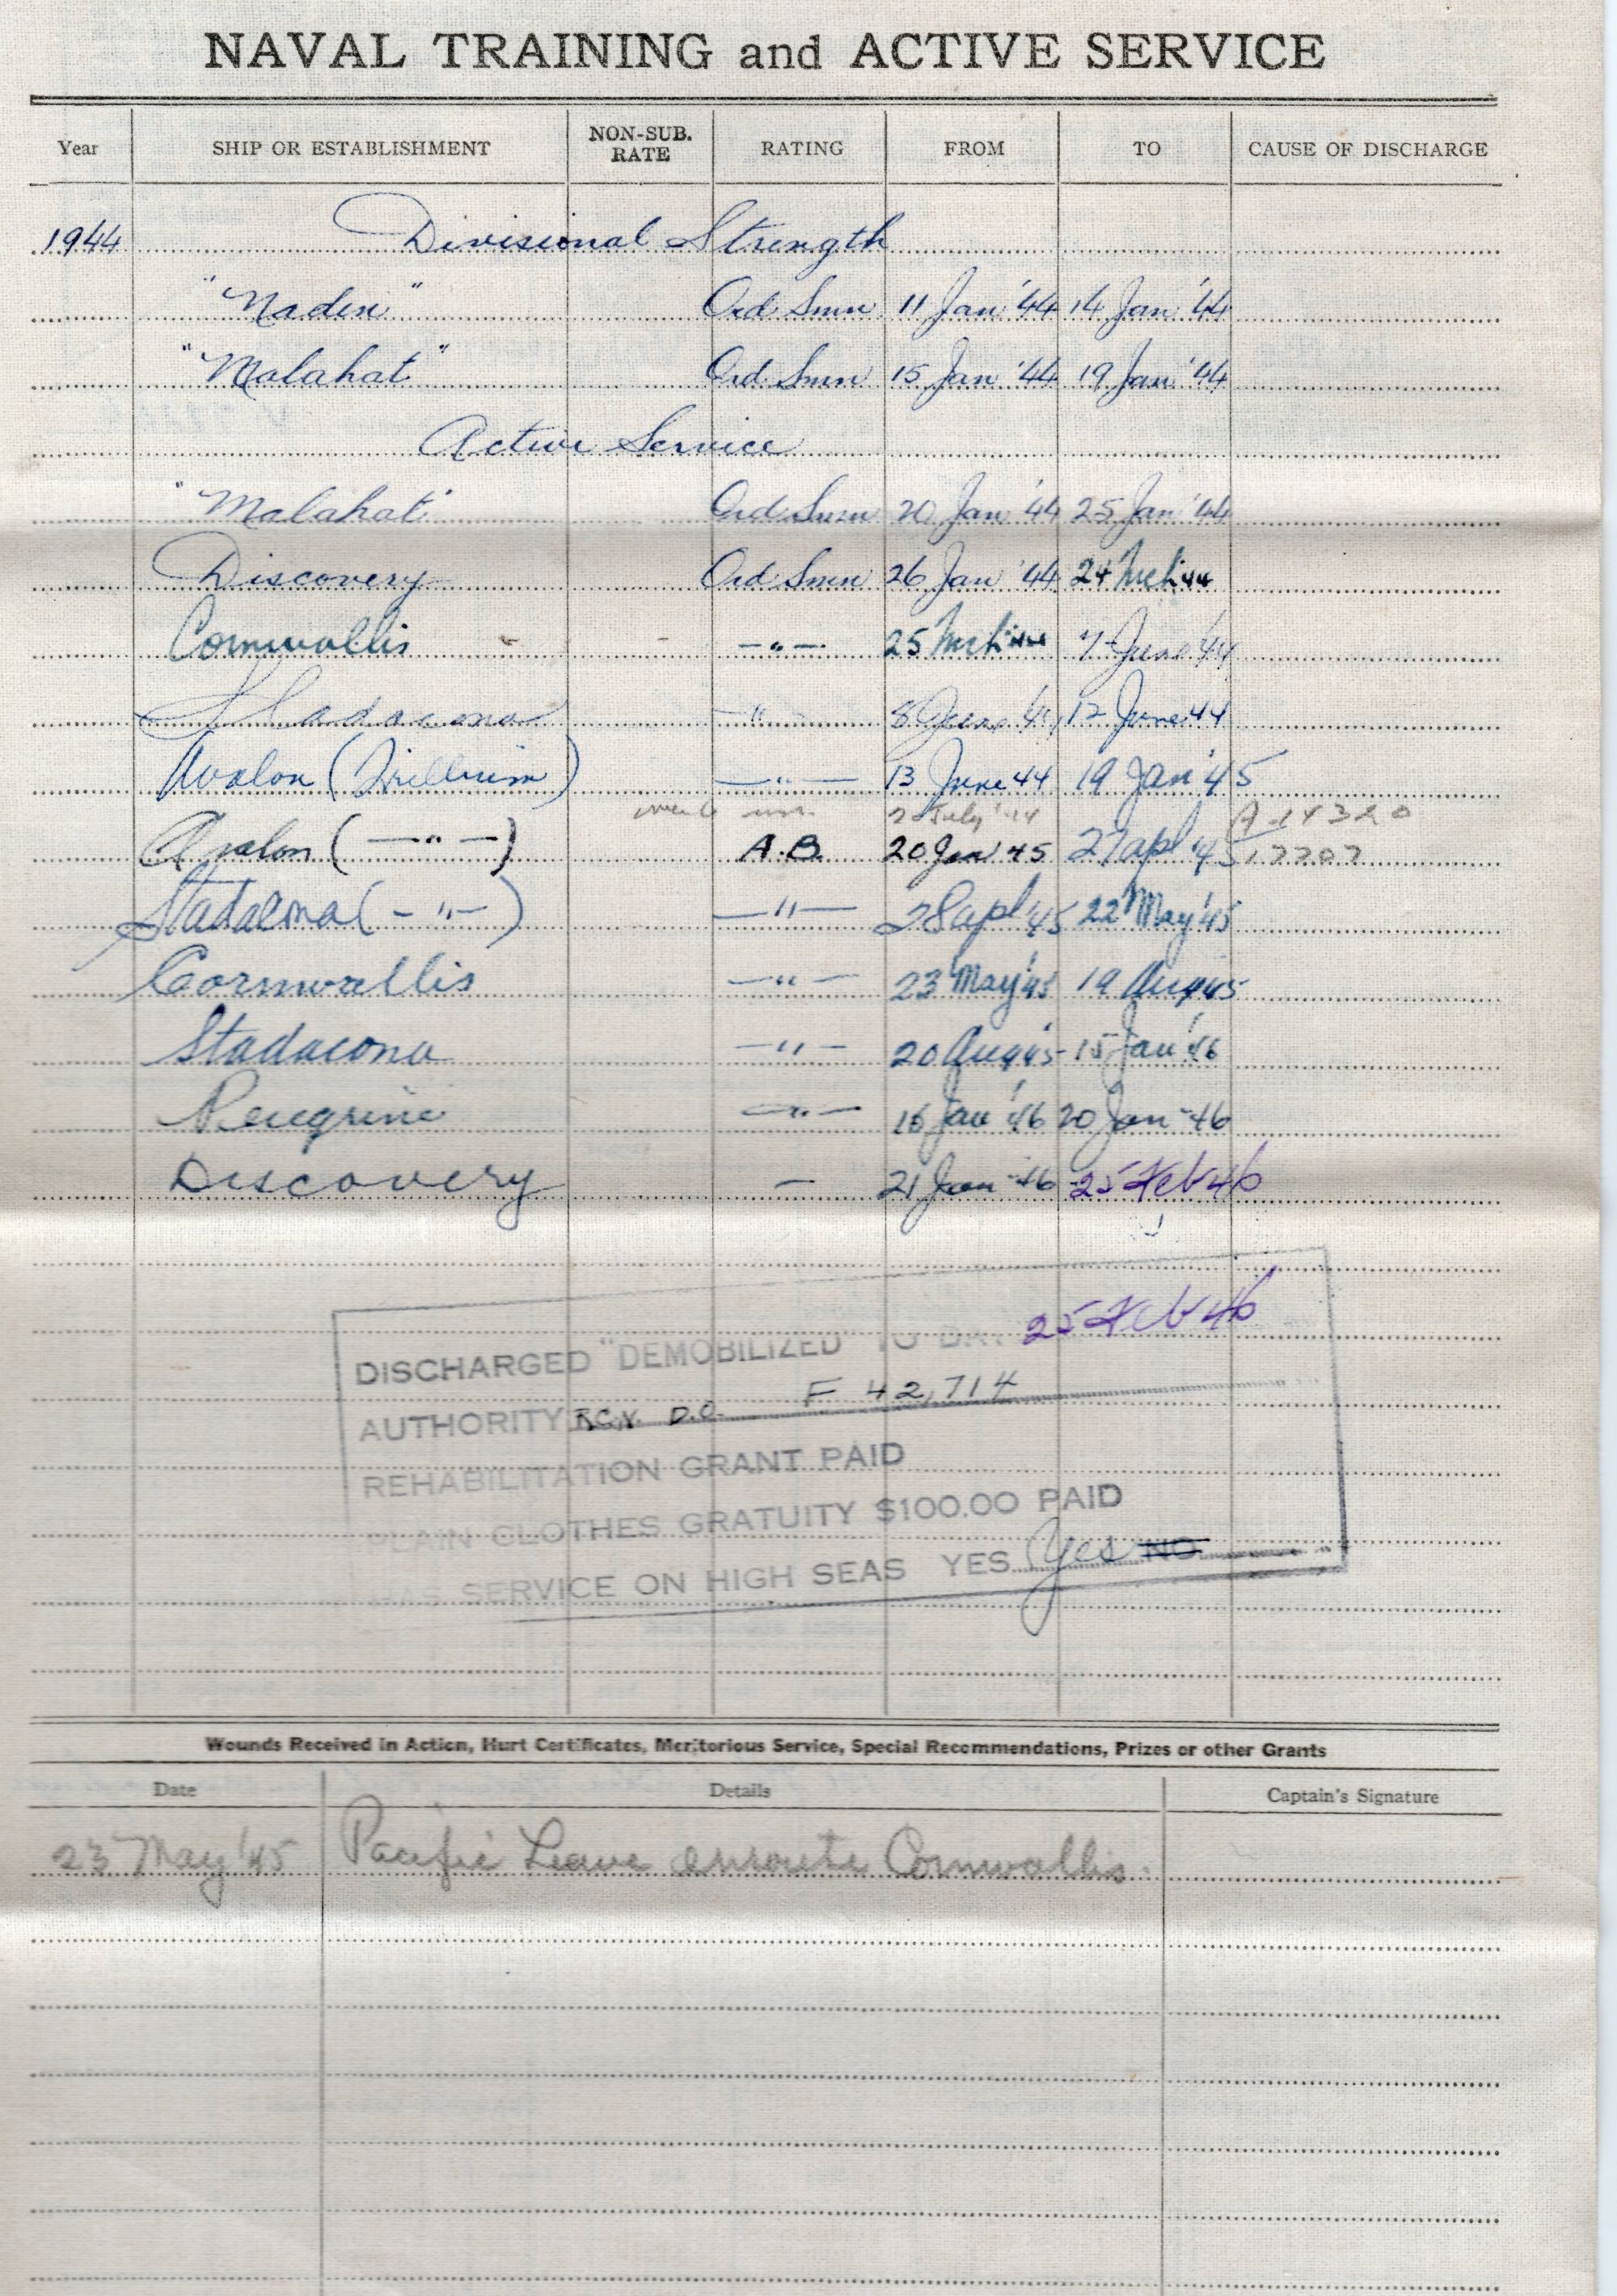 NAVAL TRAINING and ACTIVE SERVICE
Year SHIP OR ESTABLISHMENT NON-SUB. RATE RATING FROM TO CAUSE OF DISCHARGE
1944 Divisional Strength
"Naden" Ord Smn 11 Jan '44 14 Jan '44
"Malahat" Ord Smn 15 Jan '44 19 Jan '44
Active Service
"Malahat" Ord Smn 20 Jan '44 25 Jan '44
Discovery Ord Smn 26 Jan '44 24 Mch 44
Cornwallis —"— 25 Mch 44 7 June '44
Stadacona —"— 8 June '44 12 June 44
Avalon (Trillium) —"— 13 June 44 19 Jan '45
20 July '44 A 14320
Avalon (—"—) A.B. 20 Jan '45 27 apl '45 17707
Stadacona (—"—) —"— 28 apl '45 22 May '45
Cornwallis —"— 23 May '45 19 Aug '45
Stadacona —"— 20 Aug '45 15 Jan '46
Peregrine —"— 16 Jan '46 20 Jan '46
Discovery — 21 Jan '46 25 Feb 46
DISCHARGED "DEMOBILIZED" TO DAY 25 Feb 46
AUTHORITY R.C.N. D.O. F 42,714
REHABILITATION GRANT PAID
PLAIN CLOTHES GRATUITY $100.00 PAID
HAS SERVICE ON HIGH SEAS YES Yes NO
Wounds Received in Action, Hurt Certificates, Meritorious Service, Special Recommendations, Prizes or other Grants
Date Details Captain's Signature
23 May '45 Pacific Leave enroute Cornwallis.